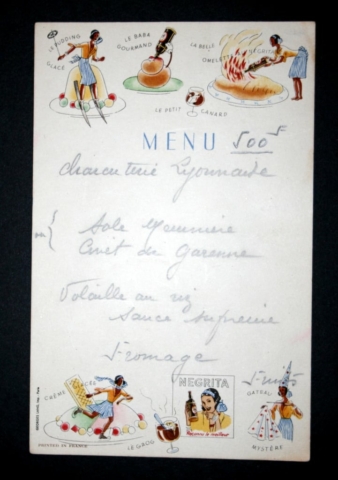 LE PUDDING GLACÉ
LE BABA GOURMAND
LA BELLE OMELETTE
NEGRITA
LE PETIT CANARD
MENU 500 F
Charcuterie Lyonnaise
Sole Meunière
ou
Civet de Garenne
Volaille au riz
sauce suprême
Fromage
Fruits
CRÈME GLACÉE
LE GROG
NEGRITA
GATEAU MYSTÈRE
PRINTED IN FRANCE